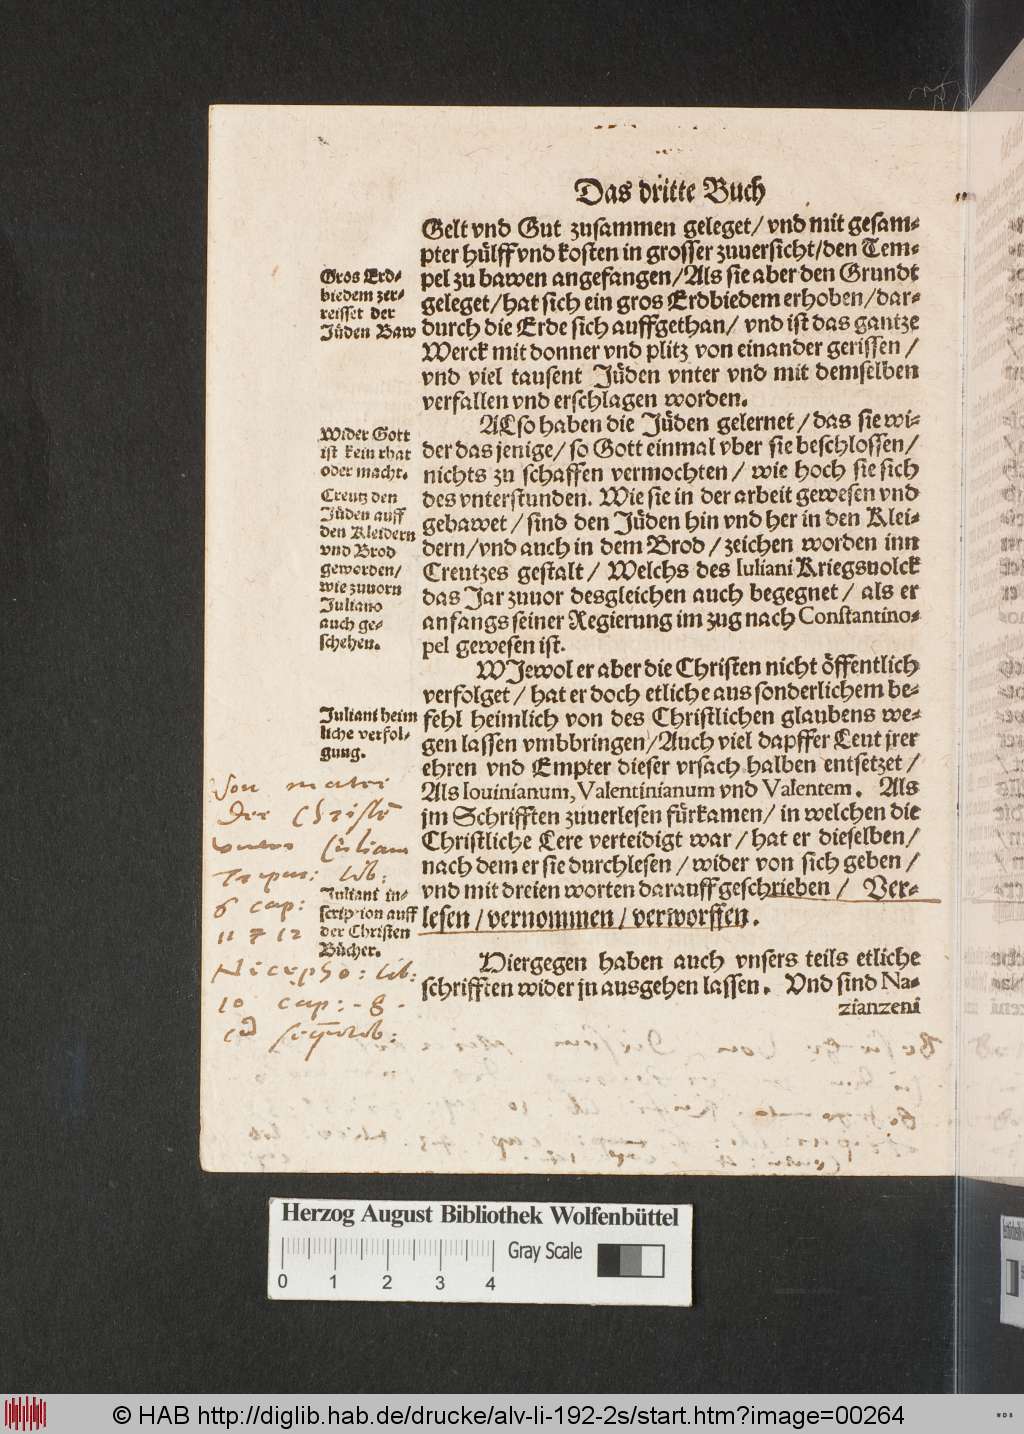 Das dritte Buch
Gelt vnd Gut zusammen geleget/ vnd mit gesam-
pter hülff vnd kosten in grosser zuuersicht/den Tem-
pel zu bawen angefangen/Als sie aber den Grundt
geleget/hat sich ein gros Erdbiedem erhoben/dar-
durch die Erde sich auffgethan/ vnd ist das gantze
Werck mit donner vnd plitz von einander gerissen/
vnd viel tausent Jüden vnter vnd mit demselben
verfallen vnd erschlagen worden.
Gros Erd-
biedem zer-
reisset der
Jüden Baw
ALso haben die Jüden gelernet/das sie wi-
der das jenige/so Gott einmal vber sie beschlossen/
nichts zu schaffen vermochten/ wie hoch sie sich
des vnterstunden. Wie sie in der arbeit gewesen vnd
gebawet/ sind den Jüden hin vnd her in den Klei-
dern/vnd auch in dem Brod/zeichen worden inn
Creutzes gestalt/ Welchs des Iuliani Kriegsuolck
das Jar zuuor desgleichen auch begegnet/ als er
anfangs seiner Regierung im zug nach Constantino-
pel gewesen ist.
Wider Gott
ist kein rhat
oder macht.
Creutz den
Jüden auff
den Kleidern
vnd Brod
geworden/
wie zuuorn
Juliano
auch ge-
schehen.
WJewol er aber die Christen nicht öffentlich
verfolget/ hat er doch etliche aus sonderlichem be-
fehl heimlich von des Christlichen glaubens we-
gen lassen vmbbringen/Auch viel dapffer Leut jrer
ehren vnd Empter dieser vrsach halben entsetzet/
Als Iouinianum, Valentinianum vnd Valentem. Als
jm Schrifften zuuerlesen fürkamen/ in welchen die
Christliche Lere verteidigt war/ hat er dieselben/
nach dem er sie durchlesen/ wider von sich geben/
vnd mit dreien worten darauff geschrieben/ Ver-
lesen/vernommen/verworffen.
Juliani heim
liche verfol-
gung.
Von
Der Christē
lib:
6 cap:
11 7 12
Nicepho: lib:
10 cap: 8.
Juliani in-
scription auff
der Christen
Bücher.
Hiergegen haben auch vnsers teils etliche
schrifften wider jn ausgehen lassen. Vnd sind Na-
zianzeni
Herzog August Bibliothek Wolfenbüttel
0 1 2 3 4
Gray Scale
© HAB http://diglib.hab.de/drucke/alv-li-192-2s/start.htm?image=00264